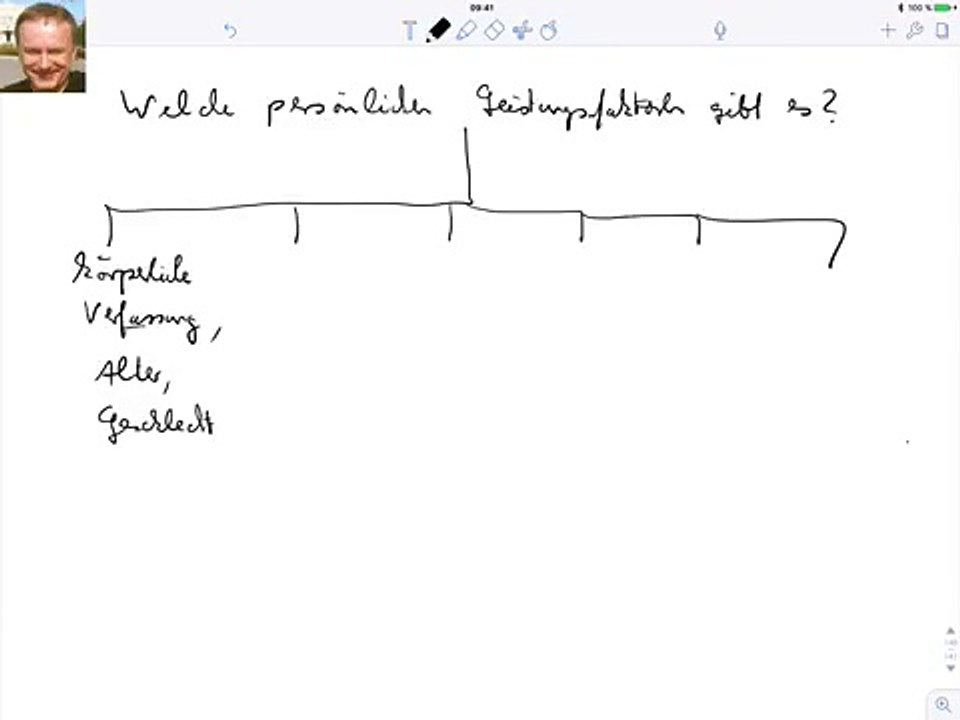 09:41
100 %
Welche persönlichen Leistungsfaktoren gibt es?
körperliche
Verfassung,
Alter,
Geschlecht